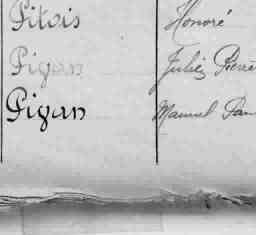 Pitois Honoré
Pigan Julien Pierre
Pigan Manuel